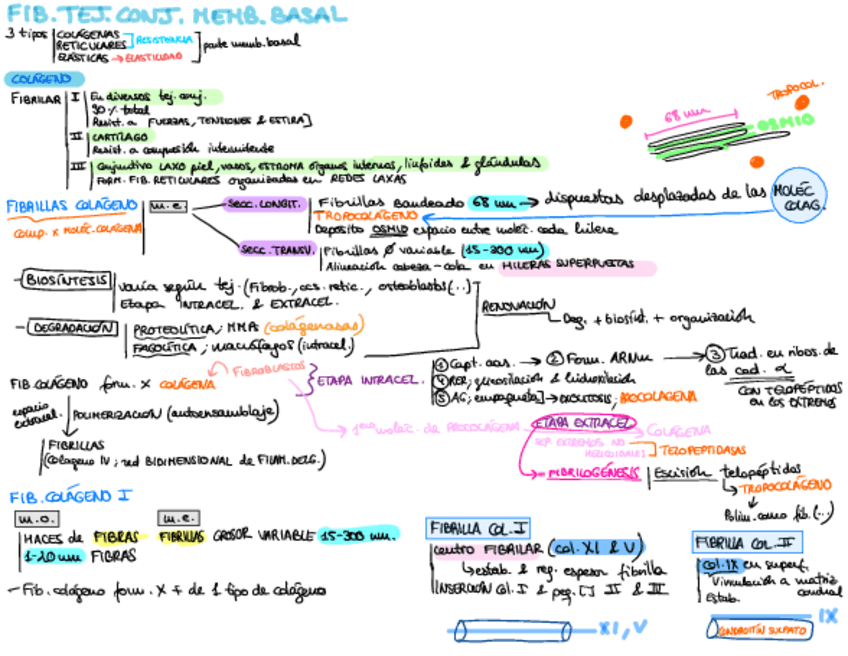 FIB. TEJ. CONJ. MEMB. BASAL
3 tipos COLÁGENAS
RETICULARES RESISTENCIA
ELÁSTICAS → ELASTICIDAD
parte memb. basal
COLÁGENO
FIBRILAR I En diversos tej. conj.
90 % total
Resist. a FUERZAS, TENSIONES & ESTIRA]
II CARTÍLAGO
Resist. a compresión intermitente
III Conjuntivo LAXO piel, vasos, ESTROMA órganos internos, linfoides & glándulas
FORM. FIB. RETICULARES organizadas en REDES LAXAS
68 nm
TROPOCOL.
OSMIO
FIBRILLAS COLÁGENO
COMP. X MOLÉC. COLÁGENA
m.e.
SECC. LONGIT. Fibrillas Bandeado 68 nm → dispuestas desplazadas de las MOLÉC COLAG.
TROPOCOLÁGENO
Depósito OSMIO espacio entre moléc. cada hilera
SECC. TRANSV. Fibrillas Ø variable (15-300 nm)
Alineación cabeza-cola en HILERAS SUPERPUESTAS
- BIOSÍNTESIS varía según tej. (Fibrob., ccs. retic., osteoblastos (..)
Etapa INTRACEL. & EXTRACEL.
- DEGRADACIÓN PROTEOLÍTICA; MMPs (colágenasas)
FAGOLÍTICA; macrófagos (intracel.)
RENOVACIÓN
Deg. + biosínt. + organización
FIB. COLÁGENO form. X COLÁGENA
FIBROBLASTOS
ETAPA INTRACEL.
① Capt. aas. → ② Form. ARNm → ③ Trad. en ribos. de
las cad. α
CON TELOPÉPTIDOS
EN LOS EXTREMOS
④ RER; glicosilación & hidroxilación
⑤ AG; empaqueta] → EXOCITOSIS; PROCOLAGENA
espacio
extracel.
POLIMERIZACIÓN (autoensamblaje)
FIBRILLAS
(Colágeno IV; red BIDIMENSIONAL de FILAM. DELG.)
1eras moléc. de PROCOLÁGENA
ETAPA EXTRACEL
COLÁGENA
SEP. EXTREMOS NO
HELICOIDALES
TELOPEPTIDASAS
→ FIBRILOGÉNESIS Escisión telopéptidos
↳ TROPOCOLÁGENO
Polim. como fib. (..)
FIB. COLÁGENO I
m.o.
m.e.
HACES de FIBRAS
FIBRILLAS GROSOR VARIABLE 15-300 nm.
1-20 nm FIBRAS
- Fib. colágeno form. X + de 1 tipo de colágeno
FIBRILLA COL. I
centro FIBRILAR (col. XI & V)
↳ estab. & reg. espesor fibrilla
INSERCIÓN Col. I & peq. [] II & III
XI, V
FIBRILLA COL. II
col. IX en superf.
Vinculación a matriz
condral
Estab.
IX
CONDROITÍN SULFATO